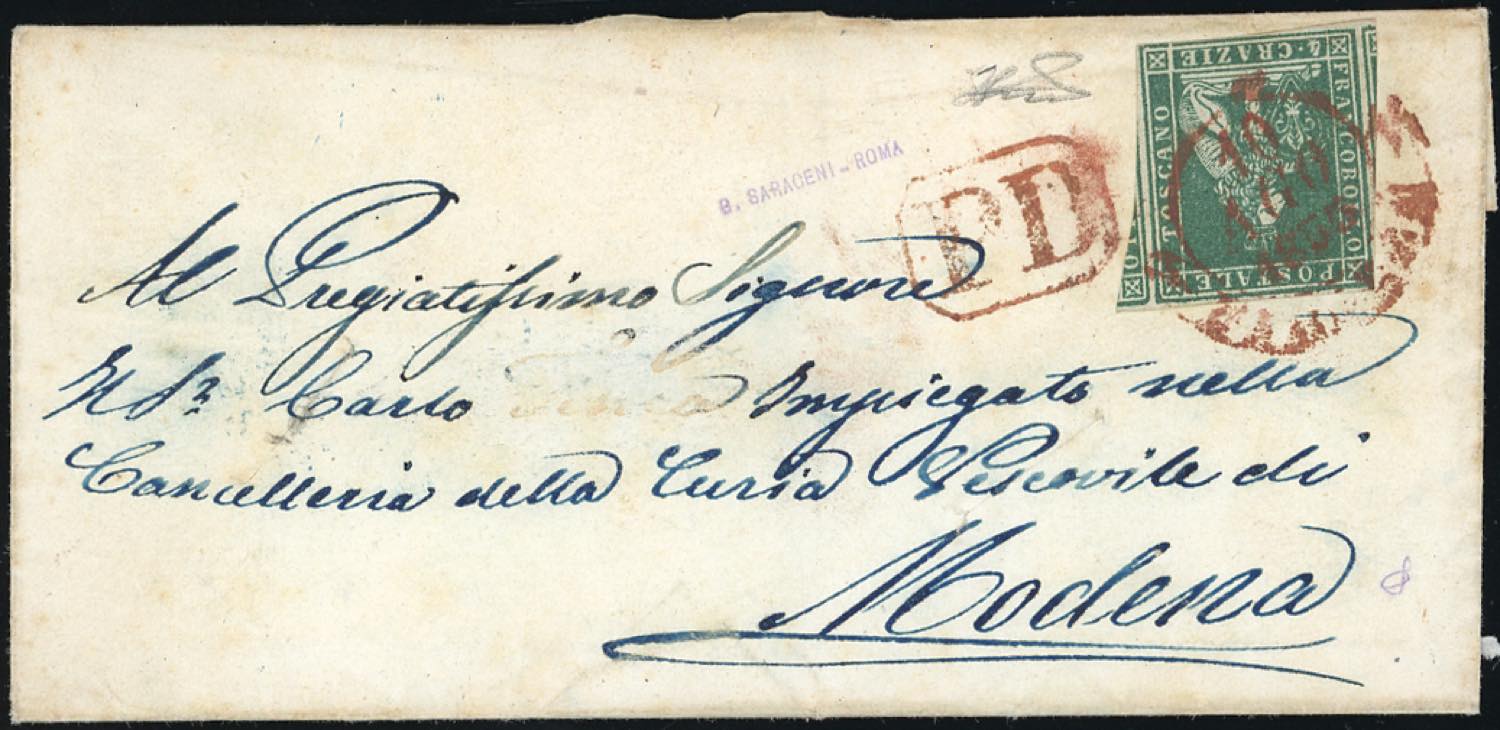 FRANCOBOLLO
POSTALE
TOSCANO
4. CRAZIE
10
LUG
1855
PD
B. SARACENI - ROMA
Al Pregiatissimo Signore
Il Sr. Carlo Impiegato nella
Cancelleria della Curia Vescovile di
Modena